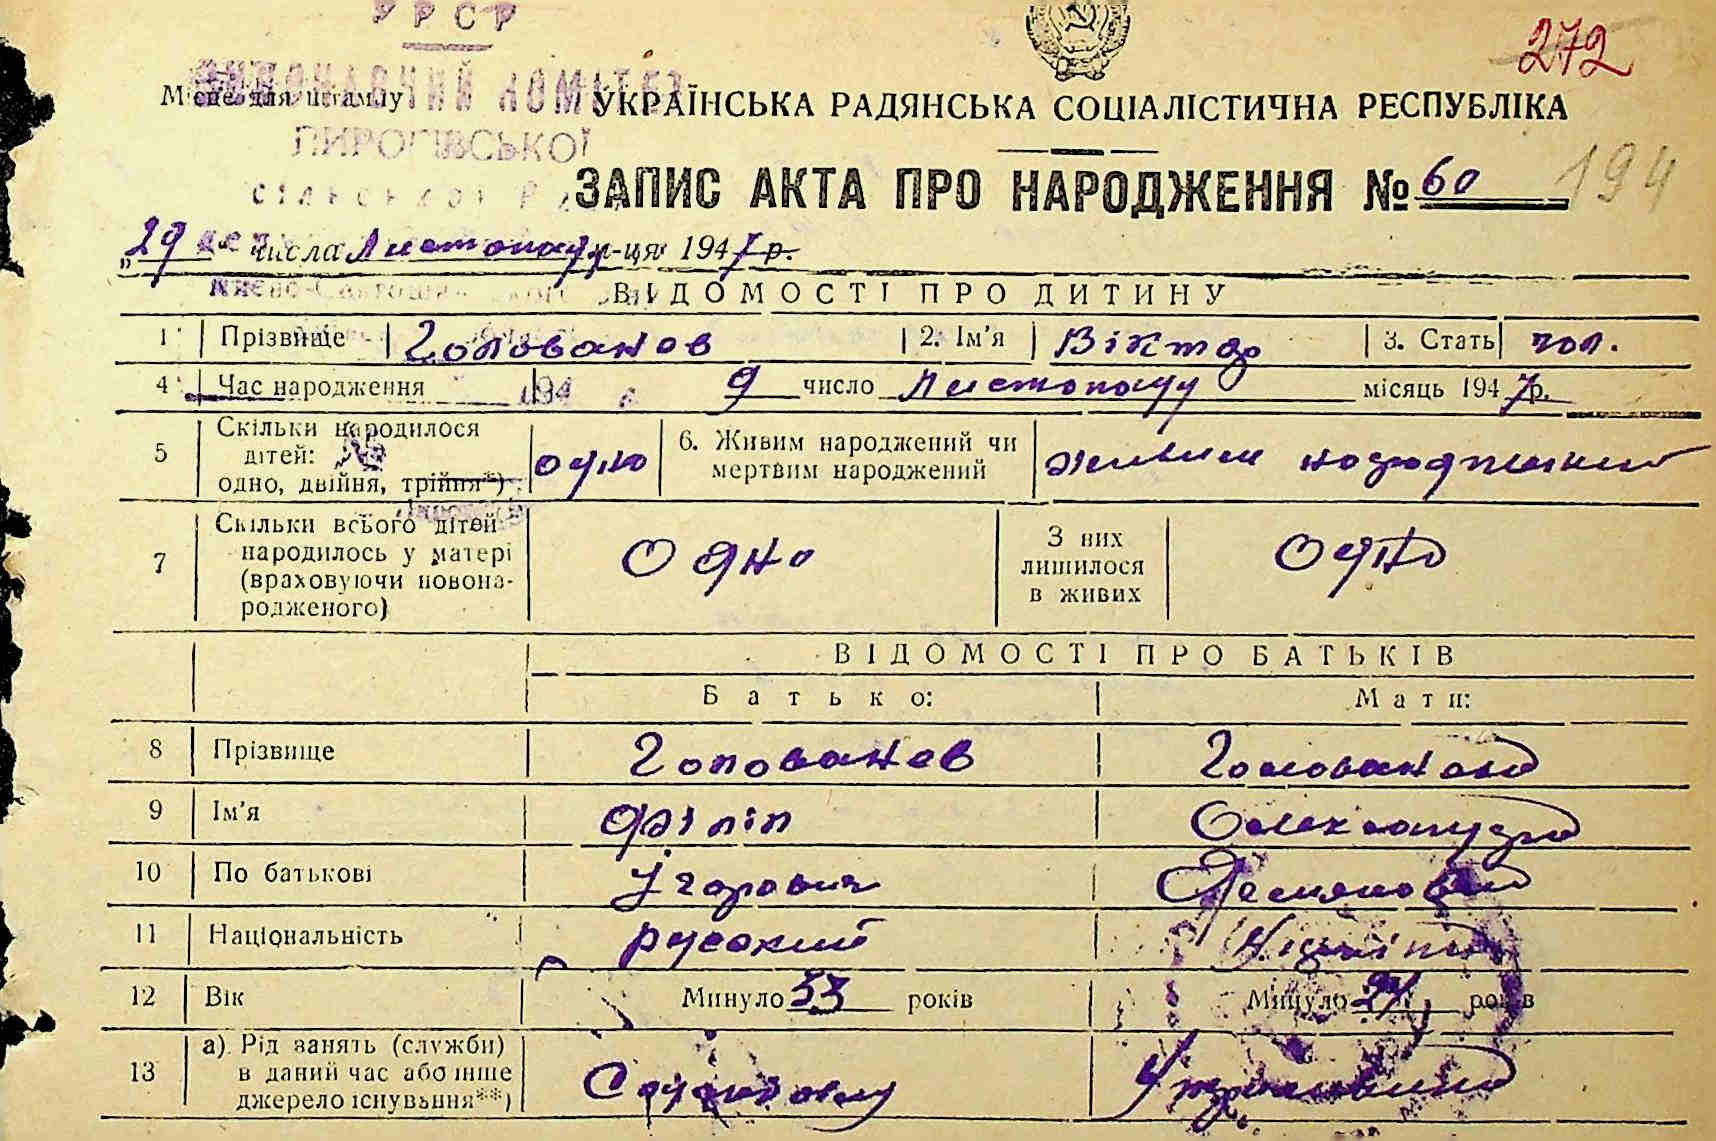 УРСР
272
ВИКОНАВЧИЙ КОМІТЕТ
Місце для штампу
УКРАЇНСЬКА РАДЯНСЬКА СОЦІАЛІСТИЧНА РЕСПУБЛІКА
ПИРОГІВСЬКОЇ
ЗАПИС АКТА ПРО НАРОДЖЕННЯ № 60 194
„29" числа Листопаду м-ця 1947 р.
ВІДОМОСТІ ПРО ДИТИНУ
1 Прізвище Голованов 2. Ім'я Віктор 3. Стать чол.
4 Час народження 9 число Листопаду місяць 1947 р.
5 Скільки народилося дітей: одно, двійня, трійня*) одно 6. Живим народжений чи мертвим народжений живим народжений
7 Скільки всього дітей народилось у матері (враховуючи новонародженого) Одно З них лишилося в живих Одно
ВІДОМОСТІ ПРО БАТЬКІВ
Батько: Мати:
8 Прізвище Голованов Голованова
9 Ім'я Філіп Олександра
10 По батькові Ігорович
11 Національність русский
12 Вік Минуло 33 років Минуло років
13 а) Рід занять (служби) в даний час або інше джерело існування**)